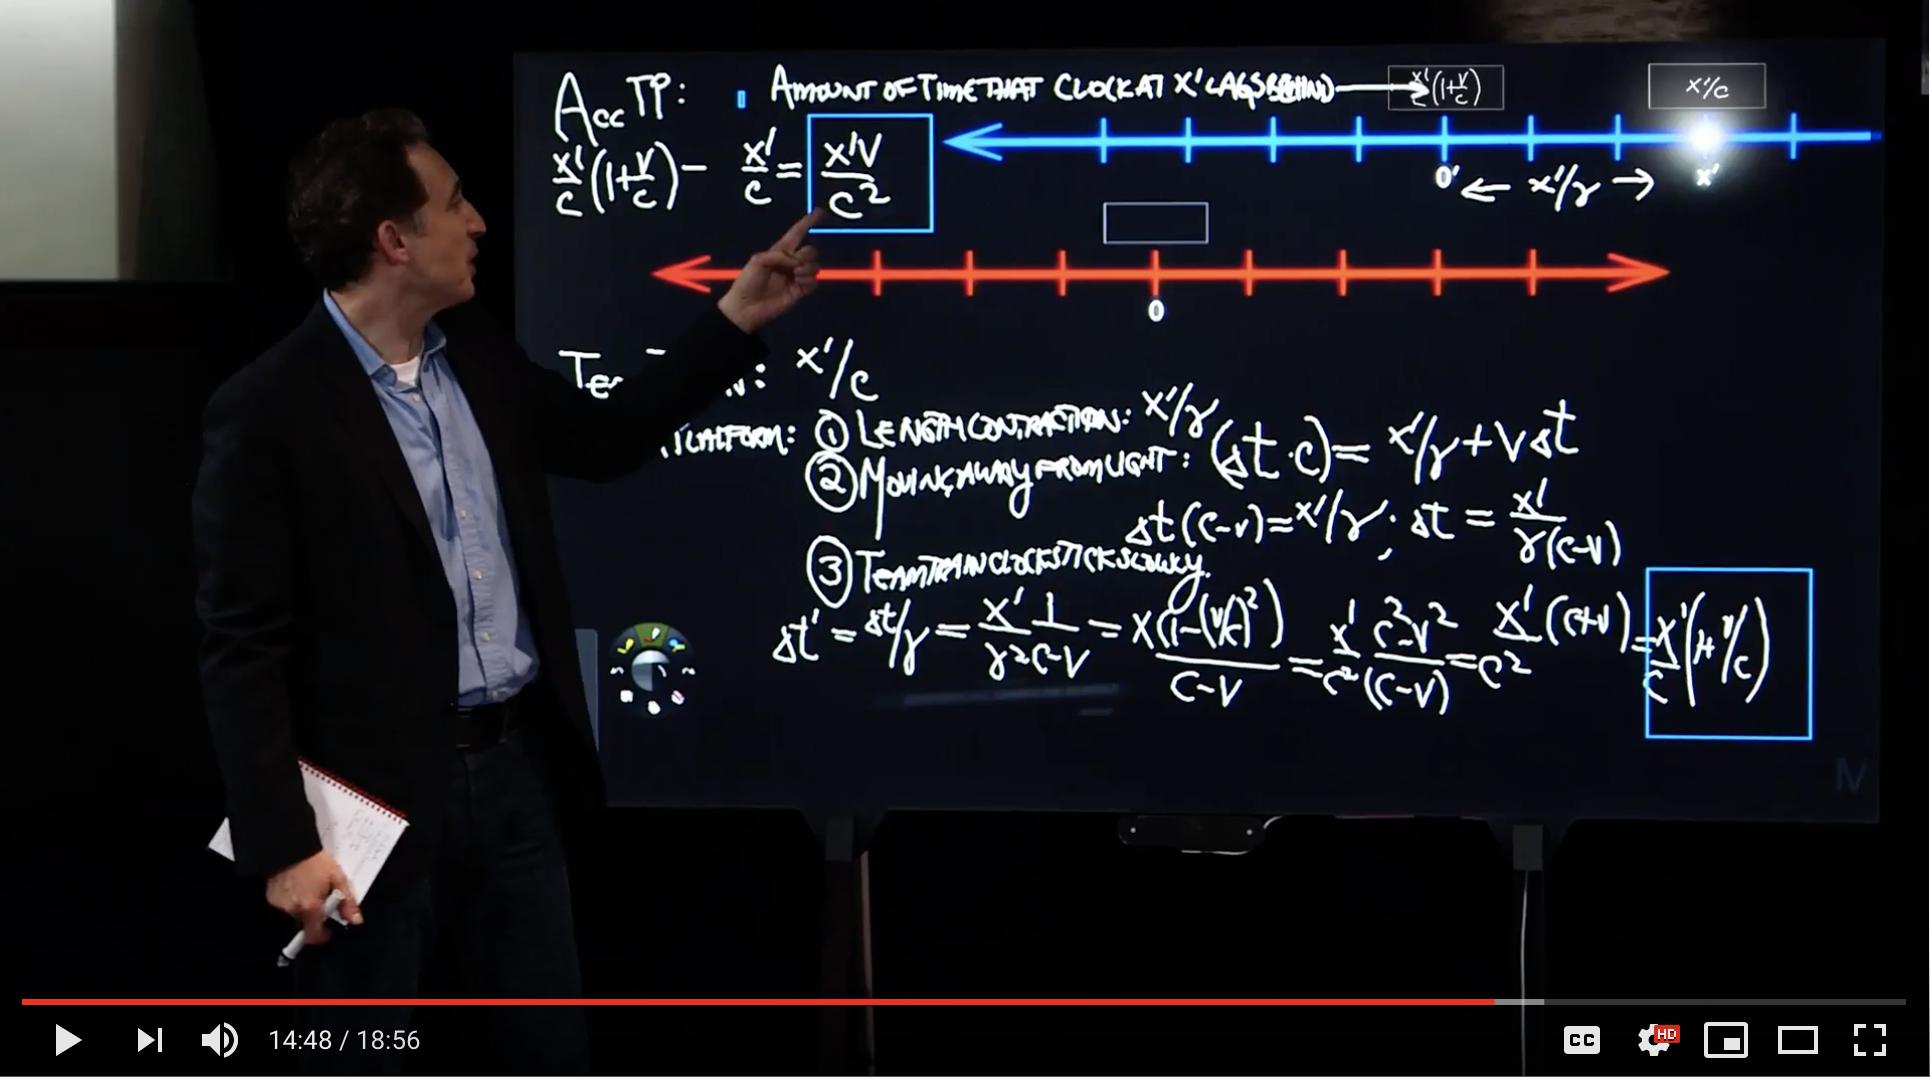 Acc TP: AMOUNT OF TIME THAT CLOCK AT X' LAGS BEHIND → x'/c(1+v/c) x'/c
x'/c(1+v/c) - x'/c = x'v/c²
0' ← x'/γ → x'
0
x'/c
PLATFORM: ① LENGTH CONTRACTION: x'/γ
② MOVING AWAY FROM LIGHT: (Δt·c) = x'/γ + vΔt
Δt(c-v) = x'/γ; Δt = x'/γ(c-v)
③ TEAM TRAIN CLOCKS TICK SLOWLY.
Δt' = Δt/γ = x'/γ² 1/c-v = x(1-(v/c)²)/c-v = x'/c² c²-v²/(c-v) = x'/c² (c+v) = x'/c (1+v/c)
14:48 / 18:56
CC HD